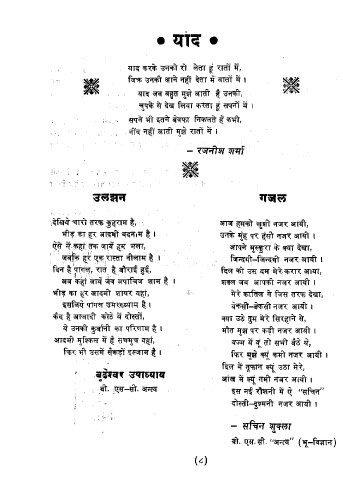 • याद •
याद करके उनको रो लेता हूं रातों में,
जिक्र उनकी आने नहीं देता मैं बातों में ।
याद जब बहुत मुझे आती है उनकी,
चुपके से देख लिया करता हूं सपनों में ।
सपने भी इतने बेवफा निकलते हैं कभी,
नींद नहीं आती मुझे रातों में ।
– रजनीश शर्मा
उलझन
देखिये चारो तरफ कुहराम है,
भीड़ का हर आदमी बदनाम है ।
ऐसे में कहां तक जायें हम भला,
जबकि हर एक रास्ता नीलाम है ।
दिन है पागल, रात है बौराई हुई,
अब कहां जायें जब अपाहिज शाम है ।
भीड़ का हर आदमी शायर यहां,
इसलिये पागल यहां बदनाम है ।
कैद है आजादी कोठे में दोस्तों,
ये उनकी कुर्बानी का परिणाम है ।
आदमी मुश्किल में है सचमुच यहां,
फिर भी उसमें सैकड़ों इल्जाम है ।
बुद्धेश्वर उपाध्याय
बी. एस-सी. अन्त्य
गजल
आज हमको खुशी नजर आयी,
उनके मुंह पर हंसी नजर आयी ।
आपने मुस्कुरा के क्या देखा,
जिन्दगी-जिन्दगी नजर आयी ।
दिल को उस दम मेरे करार आया,
शक्ल जब आपकी नजर आयी ।
मेरे कातिल ने जिस तरफ देखा,
बेकसी-बेकसी नजर आयी ।
क्या उठे तुम मेरे सिरहाने से,
मौत मुझ पर कड़ी नजर आयी ।
बज्म में यूं तो सभी बैठे थे,
फिर मुझे क्यूं कमी नजर आयी ।
दिल में तूफान क्यूं उठा मेरे,
आंख में क्यूं नमी नजर आयी ।
इस नई रौशनी में ऐ "सचिन"
दोस्ती-दुश्मनी नजर आयी ।
– सचिन शुक्ला
बी. एस. सी. "अन्त्य" (भू-विज्ञान)
(८)